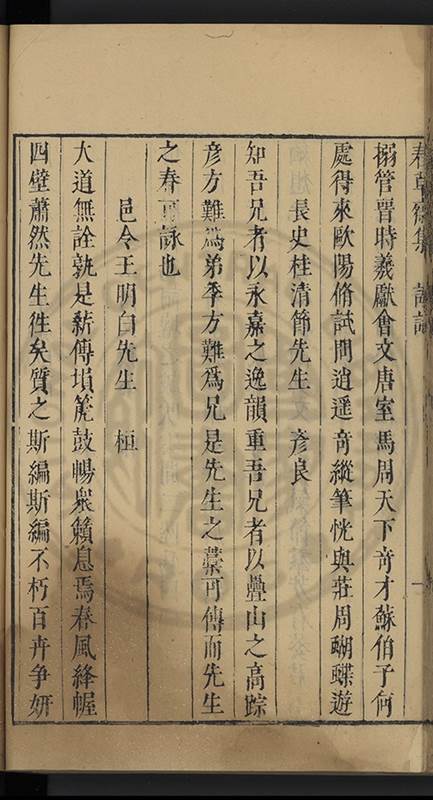 春草齋集
搦管晉時羲獻會文唐室馬周天下奇才蘇伯子何
處得來歐陽脩試問逍遥奇縱筆恍與莊周蝴蝶遊
長史桂清節先生 彥良
知吾兄者以永嘉之逸韻重吾兄者以疊山之高踪
彥方難為弟季方難爲兄是先生之藁可傳而先生
之春可詠也
邑令王明白先生 桓
大道無詮孰是薪傳塤箎鼓暢衆籟息焉春風絳幄
四壁蕭然先生徃矣質之斯編斯編不朽百卉争妍